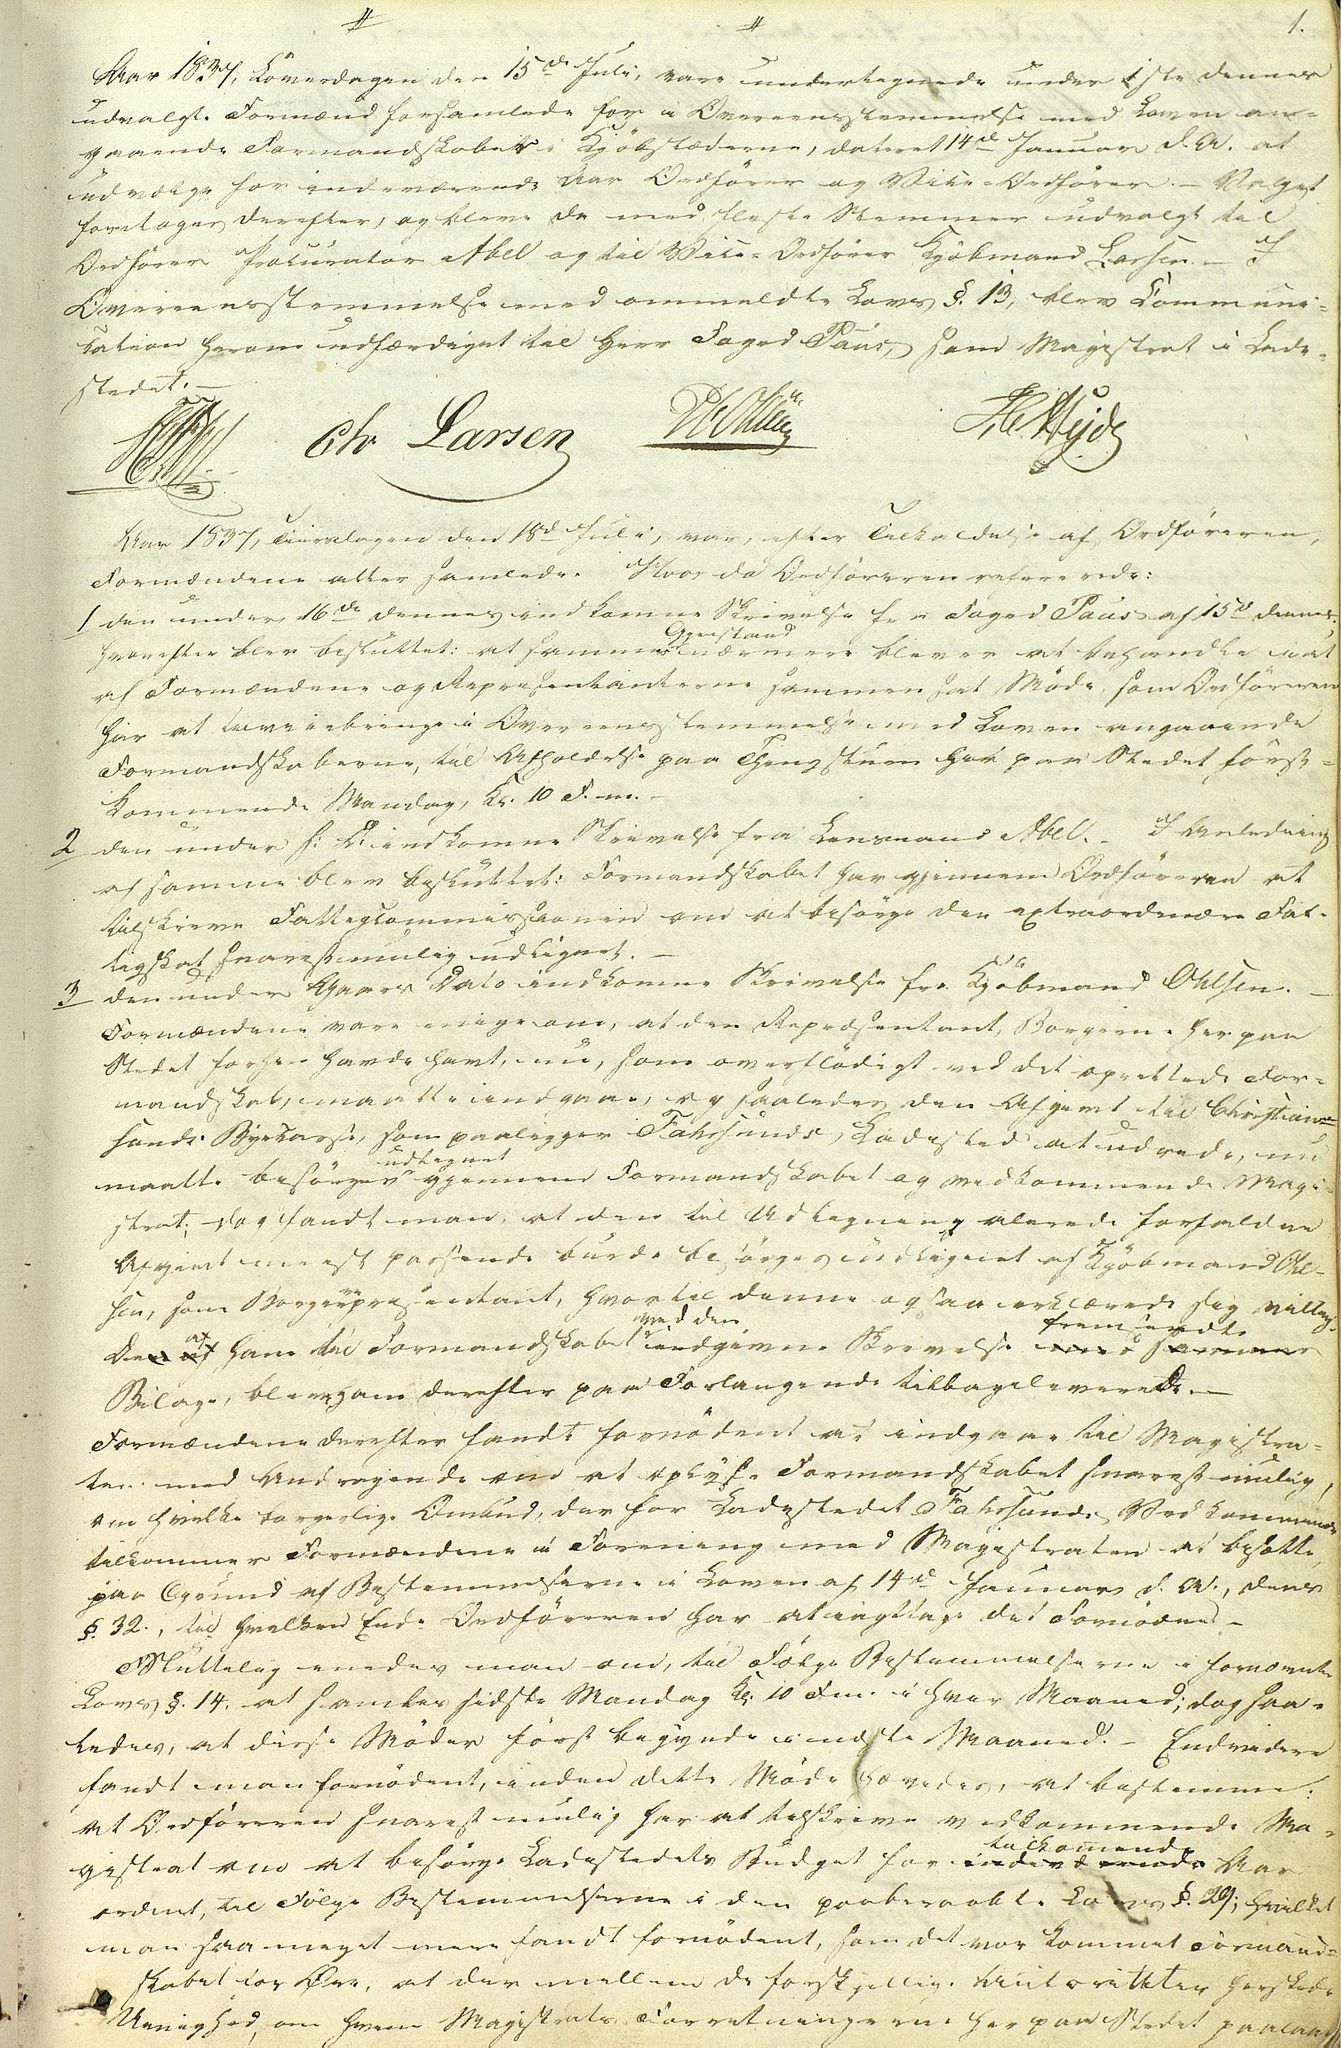 1.
Aar 1837, Löverdagen den 15de Juli, vare undertegnede under 1ste dennes
udvalgte Formænd forsamlede for i Overeensstemmelse med Loven an-
gaaende Formandskabet i Kjöbstæderne, dateret 14de Januar d.A. at
udvælge for indeværende Aar Ordförer og Vice-Ordförer. - Valget
foretoges derefter, og bleve da med fleste Stemmer udvalgt til
Ordförer Procurator Abel og til Vice-Ordförer Kjöbmand Larsen. - I
Overeensstemmelse med ommeldte Lovs §. 13, blev Communi-
cation herom udfærdiget til Herr Foged Paus, som Magistrat i Lade-
stedet. -
Chr Larsen
Aar 1837, Tiirsdagen den 18de Juli, var, efter Tilholdelse af Ordföreren,
Formændene atter samlede. Hvor da Ordföreren refererede:
1 den under 16de dennes indkomne Skrivelse fra Foged Paus af 15de dennes,
Gjenstand
hvorefter blev besluttet: at sammes nærmere bliver at behandle i et
af Formændene og Repræsentanterne sammensat Möde, som Ordföreren
har at tilveiebringe i Overeensstemmelse med Loven angaaende
Formandskaberne, til Afholdelse paa Thingstuen her paa Stedet först-
kommende Mandag, Kl. 10 F.m. -
2 den under s: D: indkomne Skrivelse fra Lensmand Abel. - I Anledning
af samme blev besluttet: Formandskabet har gjennem Ordföreren at
tilskrive Fattigcommissionen om at besörge den extraordinære Fat-
tigskat snarest mulig udlignet. -
3 den under Gaars Dato indkomne Skrivelse fra Kjöbmand Ohlsen. -
Formændene vare enige om, at den Repræsentant, Borgerne her paa
Stedet forhen havde havt, nu, som overflödigt ved det oprettede For-
mandskab, maatte indgaae, og saaledes den Afgivt til Christian-
sands Byekasse, som paaligger Fahrsunds Ladested at udrede, nu
udlignet
maatte besörges gjennem Formandskabet og vedkommende Magi-
strat; dog fandt man, at den til Udligning allerede forfaldne
Afgivt meest passende burde besörges udlignet af Kjöbmand Ohl-
sen, som Borgerrepræsentant, hvortil denne ogsaa erklærede sig villig.
af med den fremsendte
Den af ham til Formandskabet indgivne Skrivelse med sammes
Bilage, blev ham derefter paa Forlangende tilbageleverede. -
Formændene derefter fandt fornödent at indgaae til Magistra-
ten med Andragende om at oplyse Formandskabet snarest mulig,
om hvilke borgerlige Ombud, der for Ladestedet Fahrsunds Vedkommende
tilkommer Formændene i Forening med Magistraten at besætte,
paa Grund af Bestemmelserne i Loven af 14de Januar d. A., dens
§. 32., til hvilken Ende Ordföreren har at iagttage det Fornödne. -
Sluttelig enedes man om, til Fölge Bestemmelserne i fornævnte
Lovs §. 14. at samles sidste Mandag Kl. 10 Fm. i hver Maaned; dog saa-
ledes, at disse Möder först begynde i næste Maaned. - Endvidere
fandt man fornödent, inden dette Möde hævedes, at bestemme:
at Ordföreren snarest mulig har at tilskrive vedkommende Ma-
tilkommende
gistrat om at besörge Ladestedets Budget for indeværende Aar
ordnet, til Fölge Bestemmelserne i den paaberaabte Lovs §. 29; hvilket
man saa meget mere fandt fornödent, som det var kommet Formand-
skabet for Öre, at der mellem de forskjellige Autoriteter herskede
Uenighed, om hvem Magistrats Forretningerne her paa Stedet paalaae